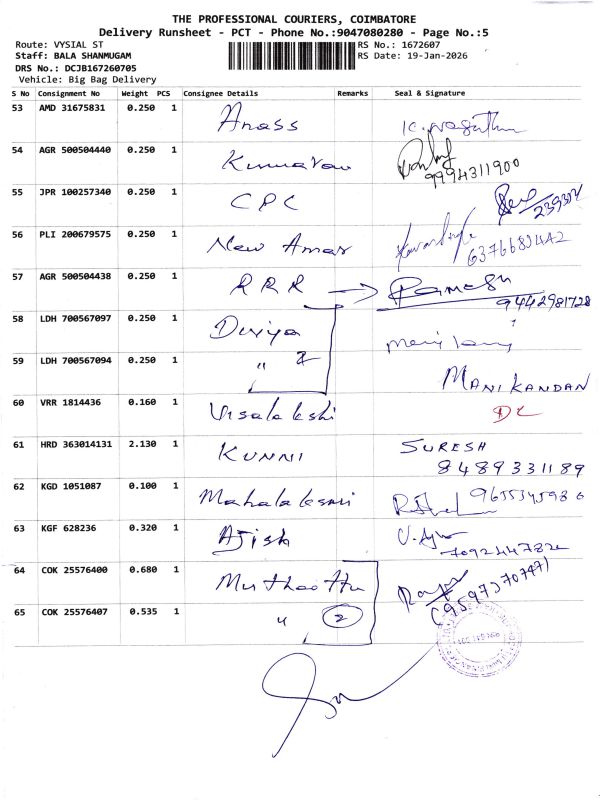 THE PROFESSIONAL COURIERS, COIMBATORE
Delivery Runsheet - PCT - Phone No.:9047080280 - Page No.:5
Route: VYSIAL ST RS No.: 1672607
Staff: BALA SHANMUGAM RS Date: 19-Jan-2026
DRS No.: DCJB167260705
Vehicle: Big Bag Delivery
S No Consignment No Weight PCS Consignee Details Remarks Seal & Signature
53 AMD 31675831 0.250 1 Anass
54 AGR 500504440 0.250 1 Kumaran 9994311900
55 JPR 100257340 0.250 1 CPC
56 PLI 200679575 0.250 1 New Amar
57 AGR 500504438 0.250 1 RRR → Ramesh
9442981728
58 LDH 700567097 0.250 1 Divya
59 LDH 700567094 0.250 1 " 2 MANIKANDAN
60 VRR 1814436 0.160 1 Visalakshi
61 HRD 363014131 2.130 1 KUNNI SURESH
8489331189
62 KGD 1051087 0.100 1 Mahalakshmi
63 KGF 628236 0.320 1 Ajish
64 COK 25576400 0.680 1 Muthoottu
65 COK 25576407 0.535 1 " 2